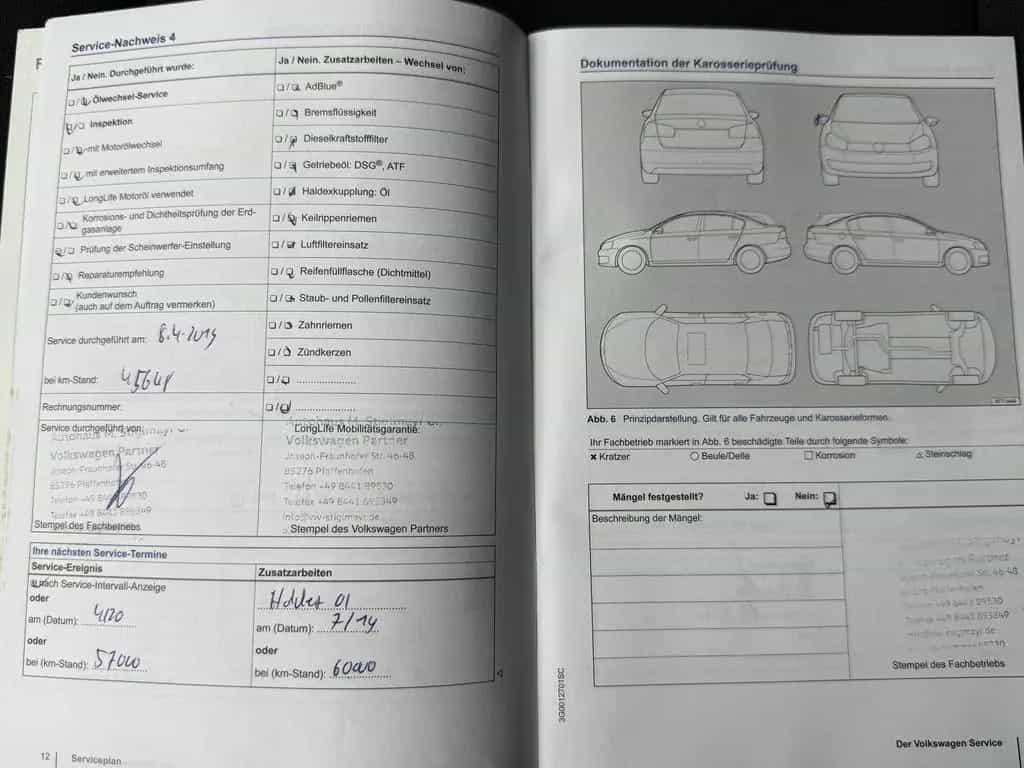 Service-Nachweis 4
Ja / Nein. Durchgeführt wurde:
❏ / ❏ Ölwechsel-Service
❏ / ❏ Inspektion
❏ / ❏ – mit Motorölwechsel
❏ / ❏ – mit erweitertem Inspektionsumfang
❏ / ❏ LongLife Motoröl verwendet
❏ / ❏ Korrosions- und Dichtheitsprüfung der Erd-
gasanlage
❏ / ❏ Prüfung der Scheinwerfer-Einstellung
❏ / ❏ Reparaturempfehlung
❏ / ❏ Kundenwunsch
(auch auf dem Auftrag vermerken)
Service durchgeführt am: 8.4.2019
bei km-Stand:
Rechnungsnummer:
Service durchgeführt von:
Autohaus M. Stiglmayr
Volkswagen Partner
Joseph-Fraunhofer Str. 46-48
85276 Pfaffenhofen
Telefon +49 8441 89530
Telefax +49 8441 895349
Stempel des Fachbetriebs
Ja / Nein. Zusatzarbeiten – Wechsel von:
❏ / ❏ AdBlue®
❏ / ❏ Bremsflüssigkeit
❏ / ❏ Dieselkraftstofffilter
❏ / ❏ Getriebeöl: DSG®, ATF
❏ / ❏ Haldexkupplung: Öl
❏ / ❏ Keilrippenriemen
❏ / ❏ Luftfiltereinsatz
❏ / ❏ Reifenfüllflasche (Dichtmittel)
❏ / ❏ Staub- und Pollenfiltereinsatz
❏ / ❏ Zahnriemen
❏ / ❏ Zündkerzen
❏ / ❏ ....................
❏ / ❏ ....................
LongLife Mobilitätsgarantie:
Autohaus M. Stiglmayr
Volkswagen Partner
Joseph-Fraunhofer Str. 46-48
85276 Pfaffenhofen
Telefon +49 8441 89530
Telefax +49 8441 895349
info@vw-stiglmayr.de
Stempel des Volkswagen Partners
Ihre nächsten Service-Termine
Service-Ereignis
❏ nach Service-Intervall-Anzeige
oder
am (Datum): 4/20
oder
bei (km-Stand): 57000
Zusatzarbeiten
Haldex Öl
am (Datum): 7/19
oder
bei (km-Stand): 60000
12 Serviceplan
Dokumentation der Karosserieprüfung
Abb. 6 Prinzipdarstellung. Gilt für alle Fahrzeuge und Karosserieformen.
Ihr Fachbetrieb markiert in Abb. 6 beschädigte Teile durch folgende Symbole:
✕ Kratzer ○ Beule/Delle □ Korrosion △ Steinschlag
Mängel festgestellt? Ja: ❏ Nein: ❏
Beschreibung der Mängel:
Str. 46-48
Telefon +49 8441 89530
Telefax +49 8441 895349
Stempel des Fachbetriebs
3G0012701SC
Der Volkswagen Service